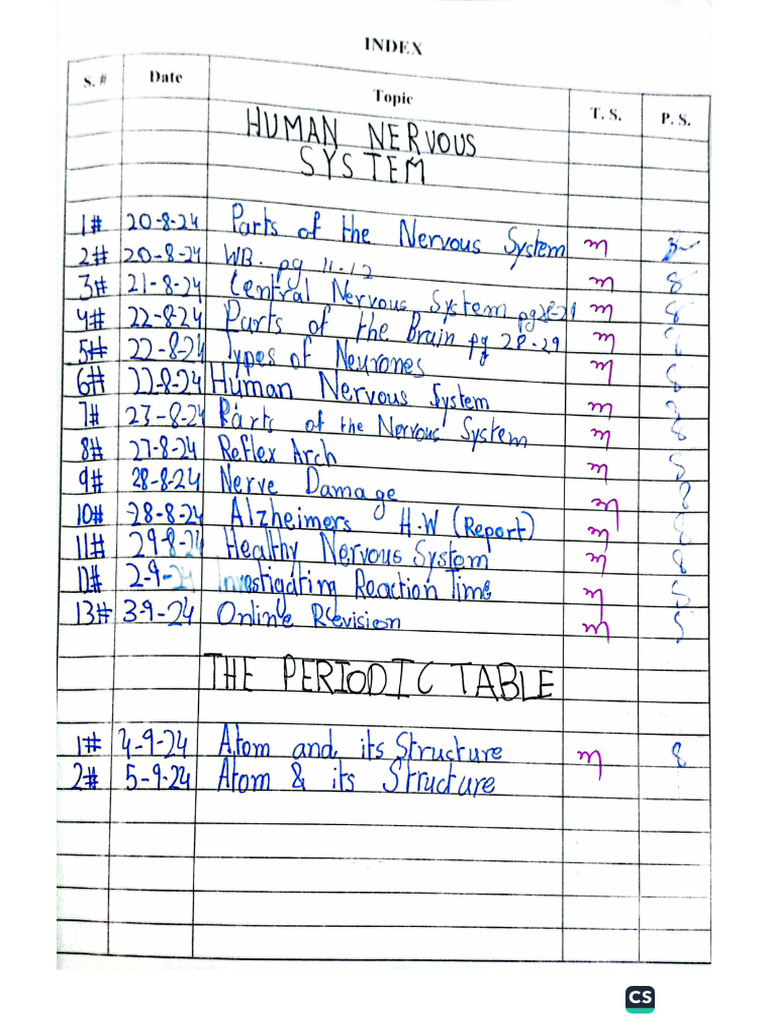 INDEX
S. # Date Topic T. S. P. S.
HUMAN NERVOUS
SYSTEM
1# 20-8-24 Parts of the Nervous System m
2# 20-8-24 WB. pg 11-12 m 8
3# 21-8-24 Central Nervous System pg28-29 m 8
4# 22-8-24 Parts of the Brain pg 28-29 m
5# 22-8-24 Types of Neurones m 8
6# 22-8-24 Human Nervous System m
7# 23-8-24 Parts of the Nervous System m 8
8# 27-8-24 Reflex Arch m
9# 28-8-24 Nerve Damage m
10# 28-8-24 Alzheimers H.W (Report) m 8
11# 29-8-24 Healthy Nervous System m 8
12# 2-9-24 Investigating Reaction Time m
13# 3-9-24 Online Revision m
THE PERIODIC TABLE
1# 4-9-24 Atom and its Structure m 8
2# 5-9-24 Atom & its Structure
CS